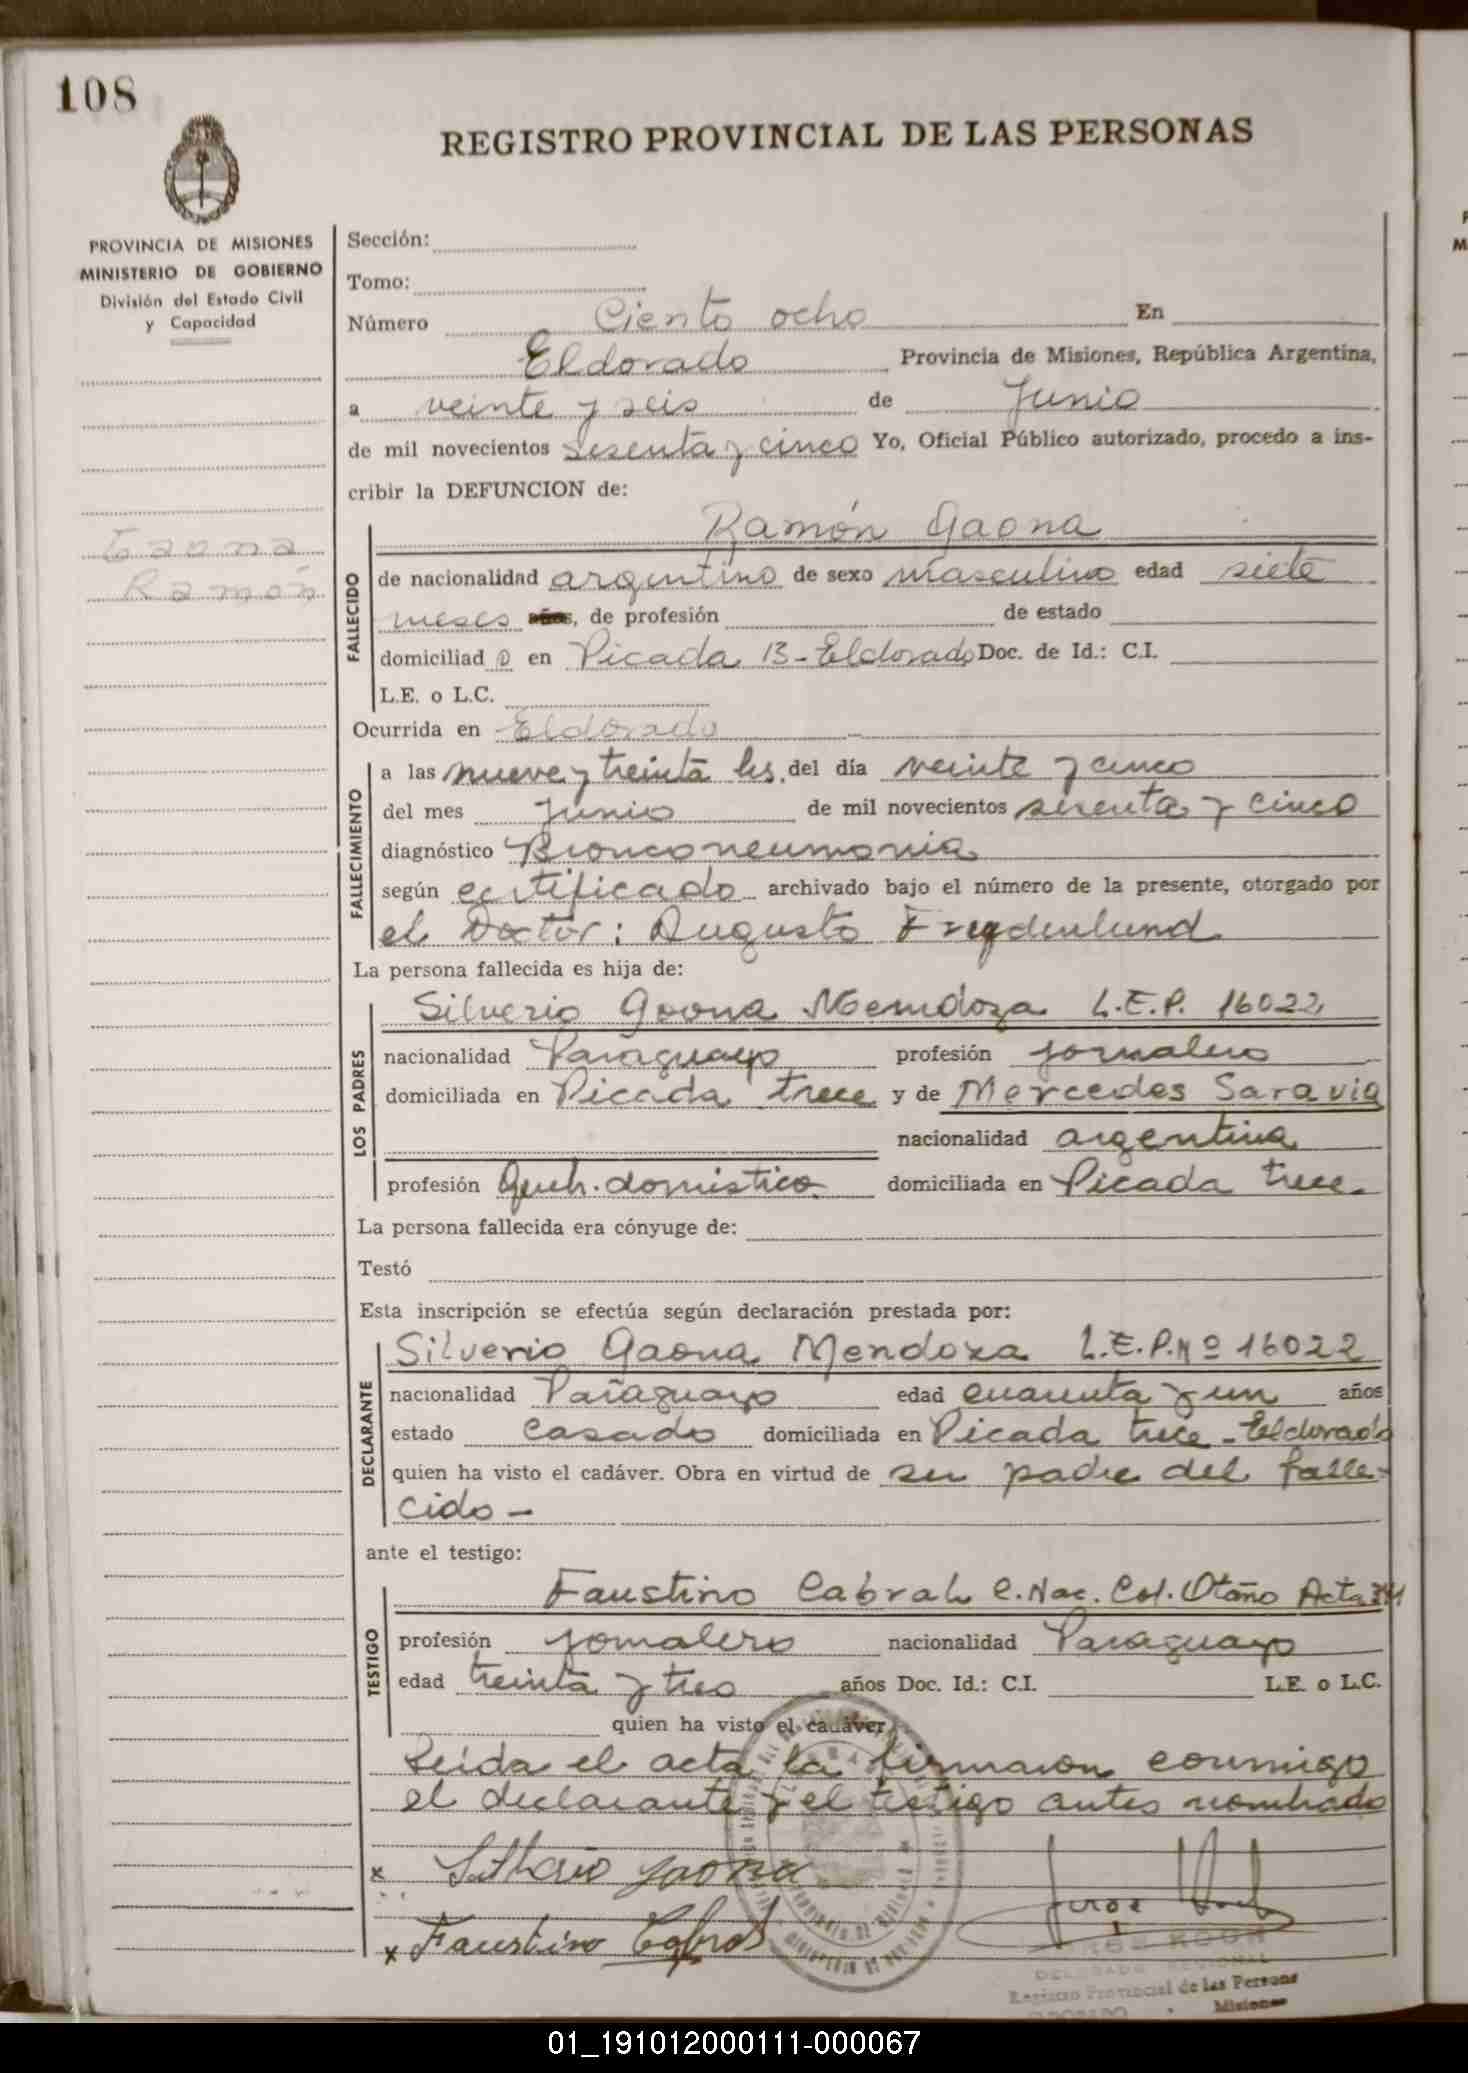 108
REGISTRO PROVINCIAL DE LAS PERSONAS
PROVINCIA DE MISIONES
MINISTERIO DE GOBIERNO
División del Estado Civil
y Capacidad
Gaona
Ramón
Sección:
Tomo:
Número Ciento ocho En
Eldorado Provincia de Misiones, República Argentina,
a veinte y seis de Junio
de mil novecientos sesenta y cinco Yo, Oficial Público autorizado, procedo a ins-
cribir la DEFUNCION de:
FALLECIDO
Ramón Gaona
de nacionalidad argentino de sexo masculino edad siete
meses años, de profesión de estado
domiciliad o en Picada 13-Eldorado Doc. de Id.: C.I.
L.E. o L.C.
Ocurrida en Eldorado
FALLECIMIENTO
a las nueve y treinta hs. del día veinte y cinco
del mes Junio de mil novecientos sesenta y cinco
diagnóstico Bronconeumonia
según certificado archivado bajo el número de la presente, otorgado por
el Doctor: Augusto
La persona fallecida es hija de:
LOS PADRES
Silverio Gaona Mendoza L.E.P. 16022
nacionalidad Paraguayo profesión jornalero
domiciliada en Picada trece y de Mercedes Saravia
nacionalidad argentina
profesión Queh. domistico domiciliada en Picada trece.
La persona fallecida era cónyuge de:
Testó
Esta inscripción se efectúa según declaración prestada por:
DECLARANTE
Silverio Gaona Mendoza L.E.P.Nº 16022
nacionalidad Paraguayo edad cuarenta y un años
estado Casado domiciliada en Picada trece - Eldorado
quien ha visto el cadáver. Obra en virtud de ser padre del falle-
cido -
ante el testigo:
TESTIGO
Faustino Cabral C. Nac. Col. Otaño Acta
profesión jornalero nacionalidad Paraguayo
edad treinta y tres años Doc. Id.: C.I. L.E. o L.C.
quien ha visto el cadáver
Leida el acta la firmaron conmigo
el declarante y el testigo antes nombrado
x Silverio Gaona
x Faustino Cabral
DELEGADO REGIONAL
Registro Provincial de las Persons
ELDORADO Misiones
01_191012000111-000067